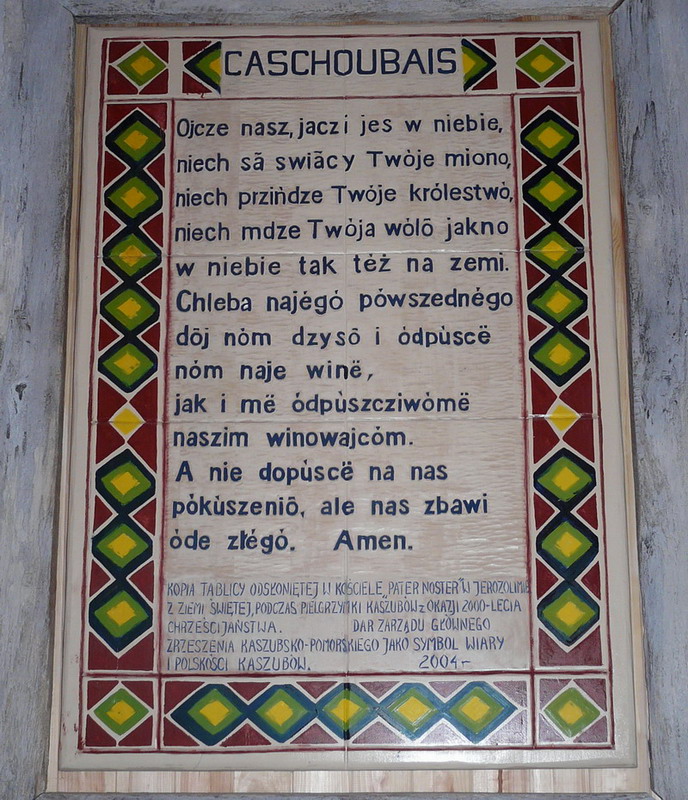 CASCHOUBAIS
Ojcze nasz, jaczi jes w niebie,
niech sã swiãcy Twòje miono,
niech przińdze Twóje królestwò,
niech mdze Twòja wòlō jakno
w niebie tak téż na zemi.
Chleba najégò pòwszednégo
dōj nóm dzysō i òdpùscë
nóm naje winë,
jak i më òdpùszcziwómë
naszim winowajcóm.
A nie dopùscë na nas
pòkùszeniō, ale nas zbawi
òde złégò. Amen.
KOPIA TABLICY ODSŁONIĘTEJ W KOŚCIELE „PATER NOSTER" W JEROZOLIMIE
Z ZIEMI ŚWIĘTEJ, PODCZAS PIELGRZYMKI KASZUBÓW z OKAZJI 2000-LECIA
CHRZEŚCIJAŃSTWA. DAR ZARZĄDU GŁÓWNEGO
ZRZESZENIA KASZUBSKO-POMORSKIEGO JAKO SYMBOL WIARY
I POLSKOŚCI KASZUBÓW. 2004-